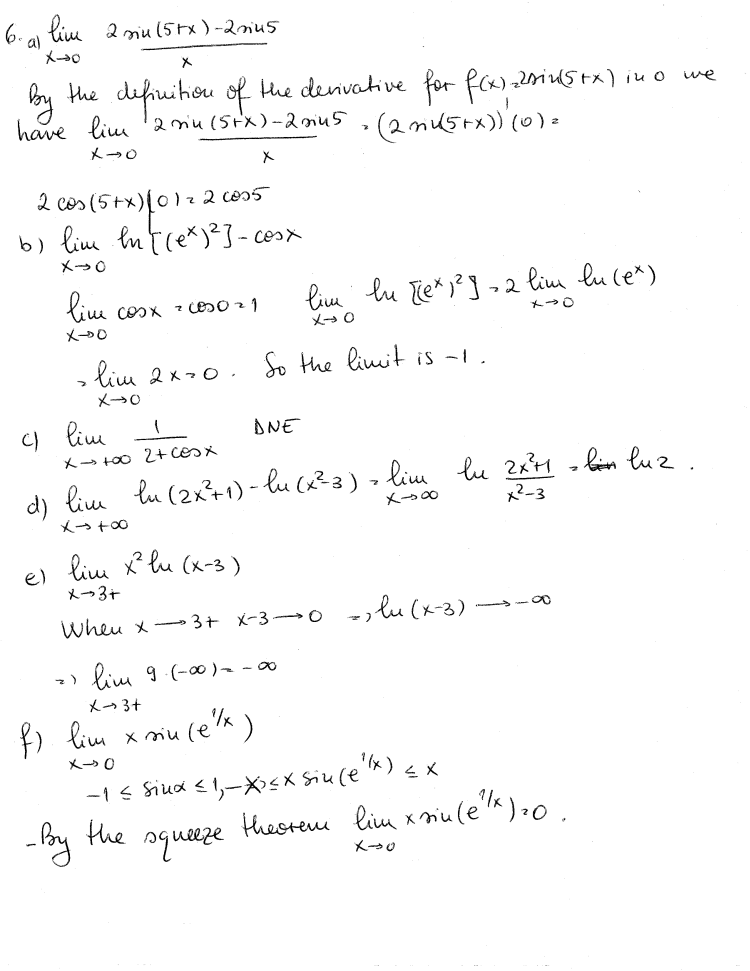 6. a) lim 2 sin(5+x) - 2 sin5
x→0 x
By the definition of the derivative for f(x) = 2sin(5+x) in 0 we
have lim 2 sin(5+x) - 2 sin5 = (2 sin(5+x))'(0) =
x→0 x
2 cos(5+x)|(0) = 2 cos5
b) lim ln [(e^x)^2] - cosx
x→0
lim cosx = cos0 = 1 lim ln [(e^x)^2] = 2 lim ln(e^x)
x→0 x→0 x→0
= lim 2x = 0. So the limit is -1.
x→0
c) lim 1 DNE
x→+∞ 2+cosx
d) lim ln(2x²+1) - ln(x²-3) = lim ln 2x²+1 = ln2.
x→+∞ x→∞ x²-3
e) lim x² ln(x-3)
x→3+
When x → 3+ x-3 → 0 => ln(x-3) → -∞
=> lim 9·(-∞) = -∞
x→3+
f) lim x sin(e^1/x)
x→0
-1 ≤ sinα ≤ 1, -x ≤ x sin(e^1/x) ≤ x
- By the squeeze theorem lim x sin(e^1/x) = 0.
x→0